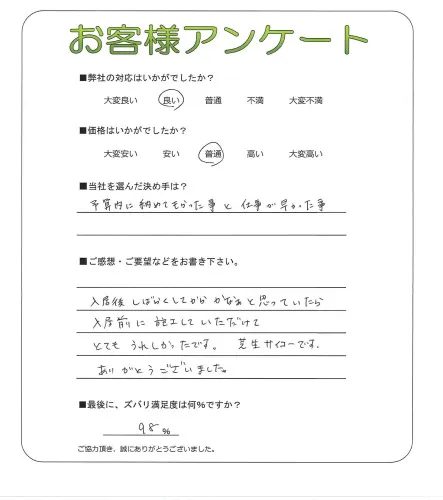 お客様アンケート
■弊社の対応はいかがでしたか？
大変良い 良い 普通 不満 大変不満
■価格はいかがでしたか？
大変安い 安い 普通 高い 大変高い
■当社を選んだ決め手は？
予算内に納めてもらった事と 仕事が早かった事
■ご感想・ご要望などをお書き下さい。
入居後しばらくしてからかなぁと思っていたら
入居前に施工していただけて
とてもうれしかったです。 芝生サイコーです.
ありがとうございました。
■最後に、ズバリ満足度は何%ですか？
98%
ご協力頂き、誠にありがとうございました。